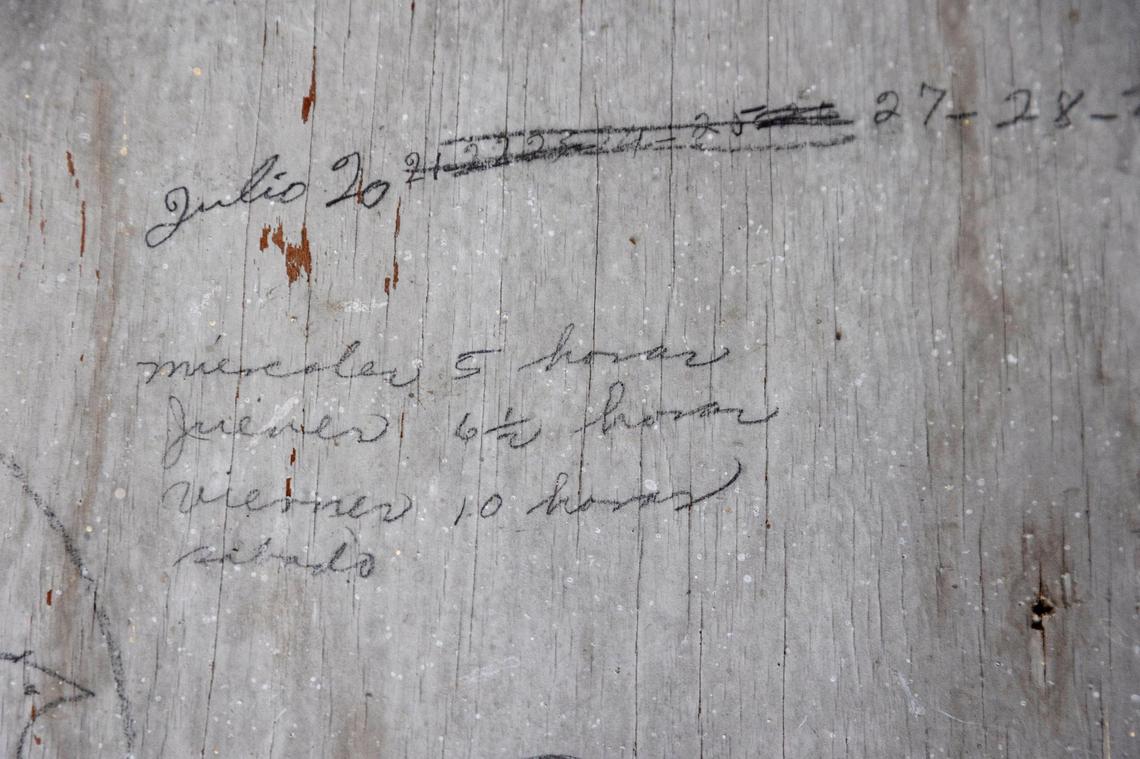 Julio 20 21 22 23 24 - 25 26 27 - 28 -
miércoles 5 horas
Jueves 6½ horas
viernes 10 horas
sábado